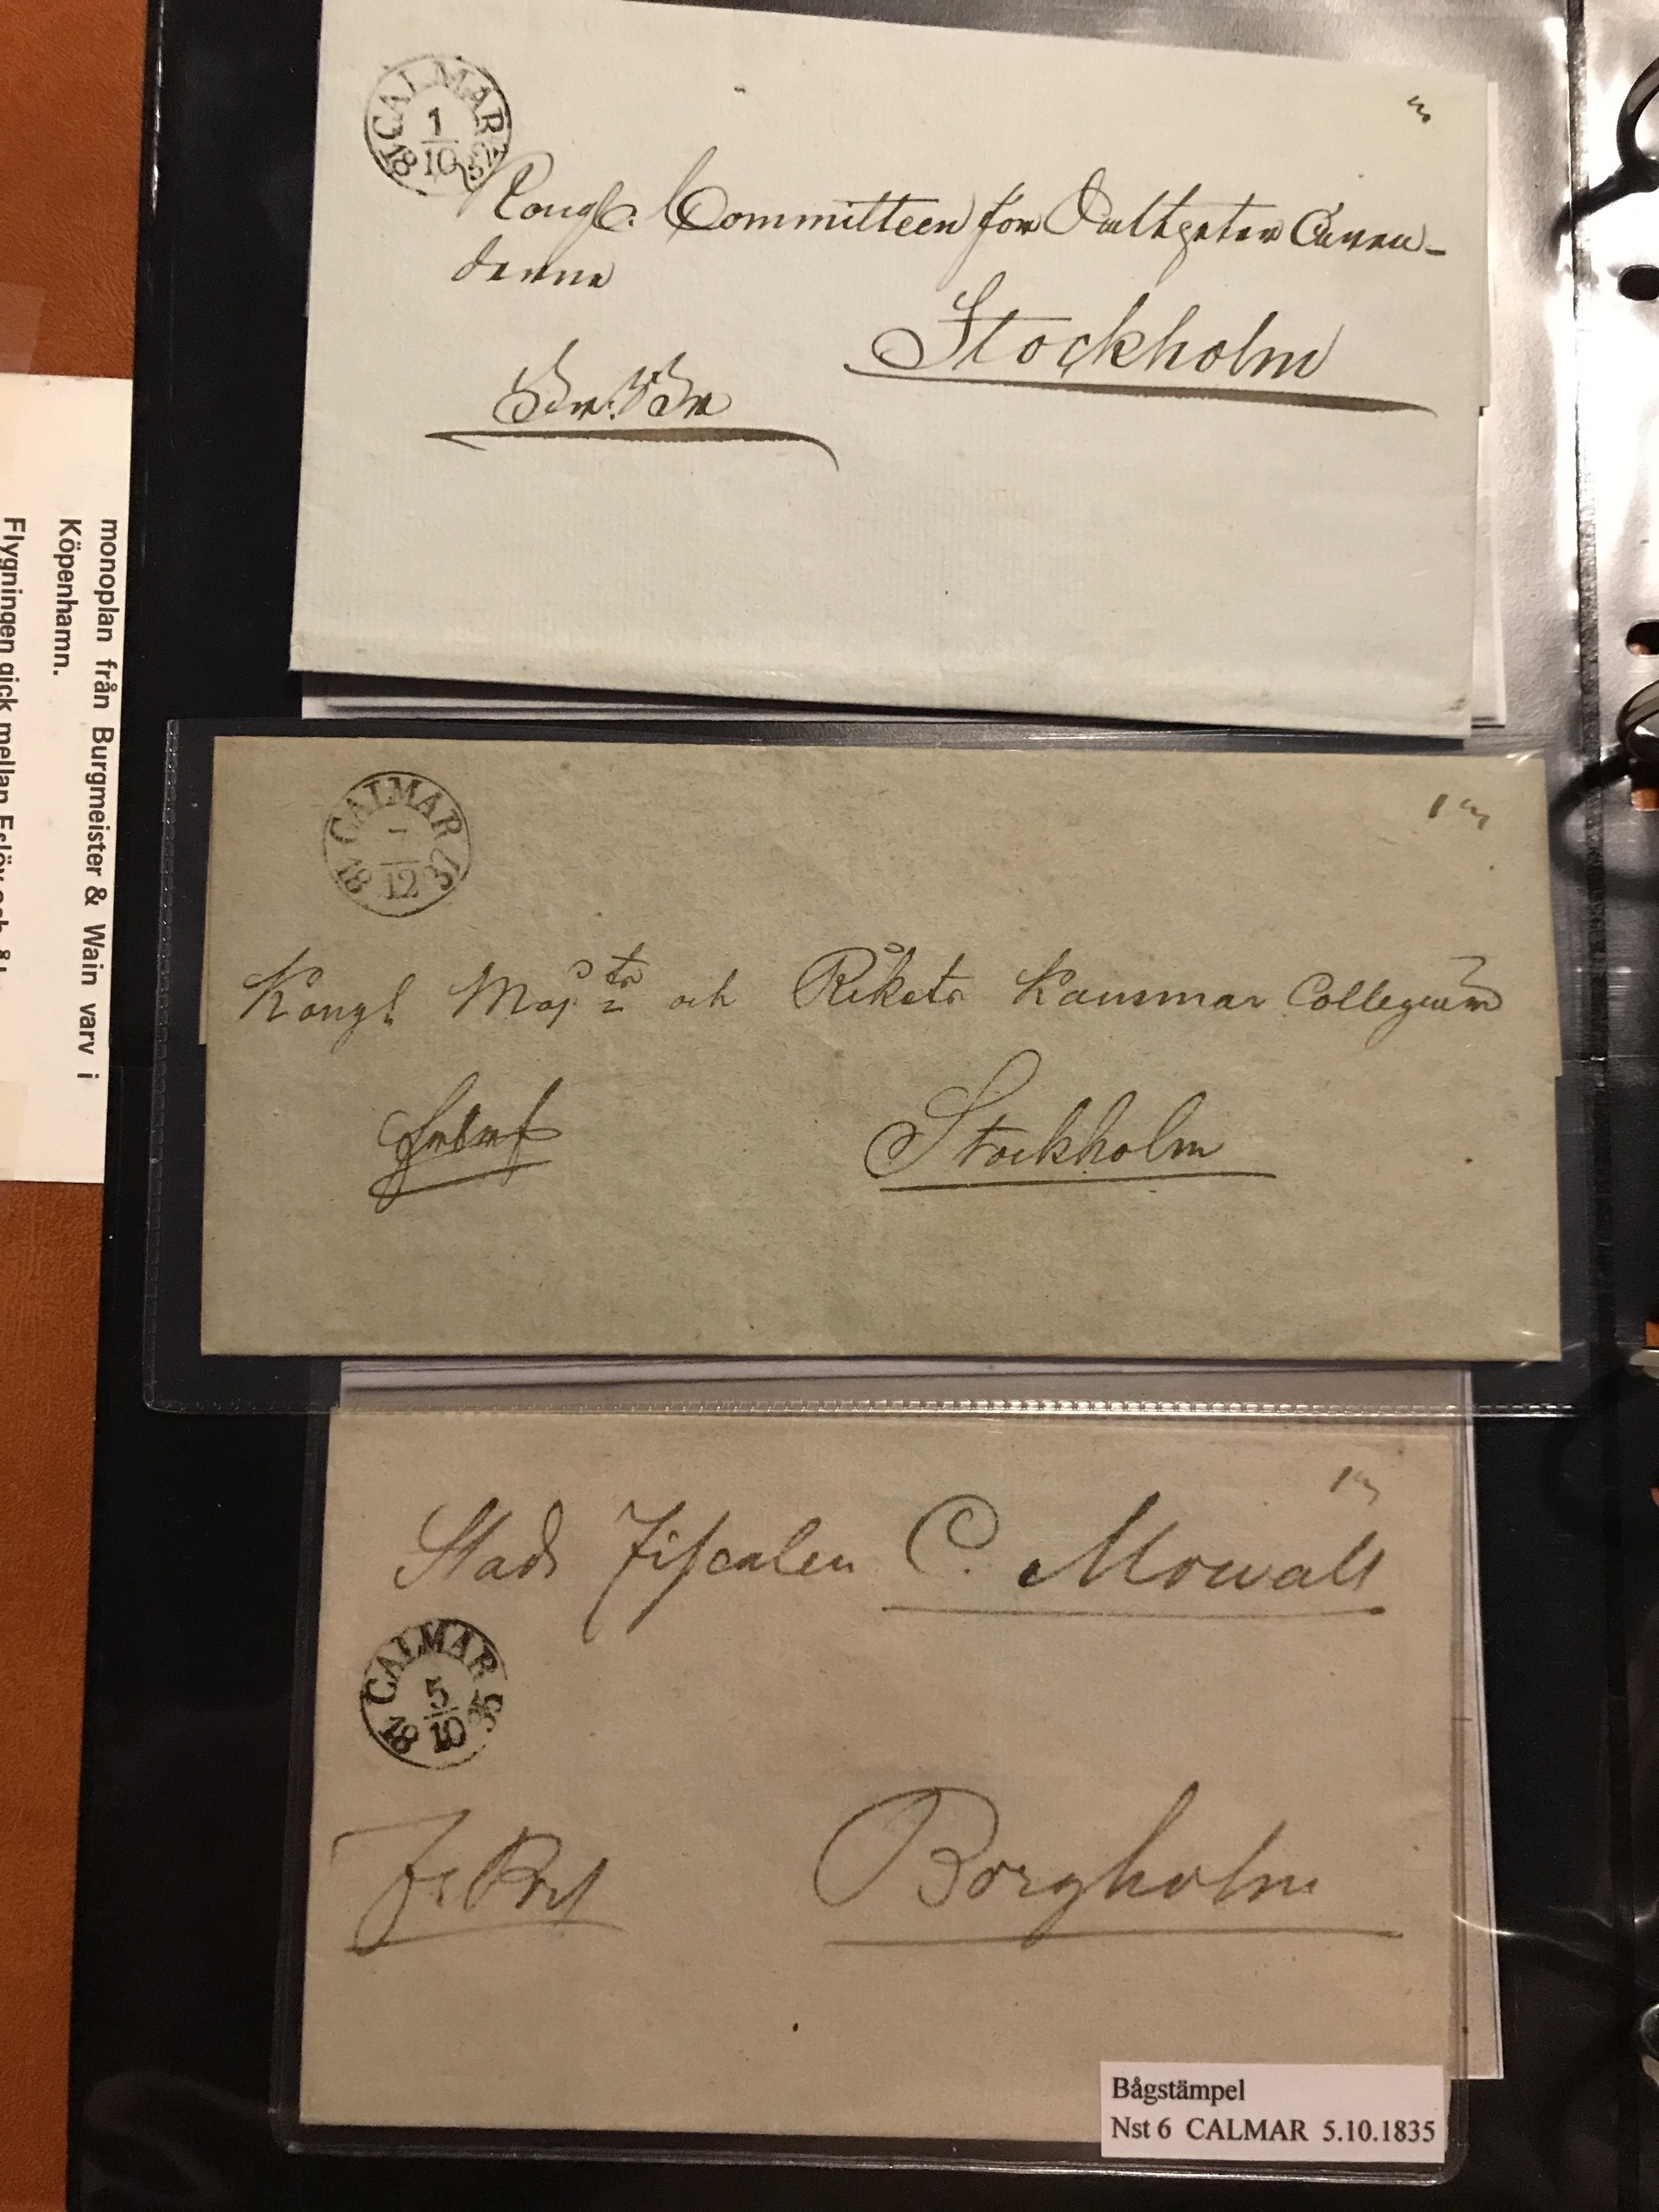 CALMAR
1
10
18 32
Committeen för
Stockholm
CALMAR
7
12
18 37
Kongl Maj:ts och Rikets Kammar Collegium
Stockholm
Stads Fiscalen C. Mowall
CALMAR
5
10
18 35
Borgholm
Bågstämpel
Nst 6 CALMAR 5.10.1835
monoplan från Burgmeister & Wain varv i
Köpenhamn.
Flygningen gick mellan